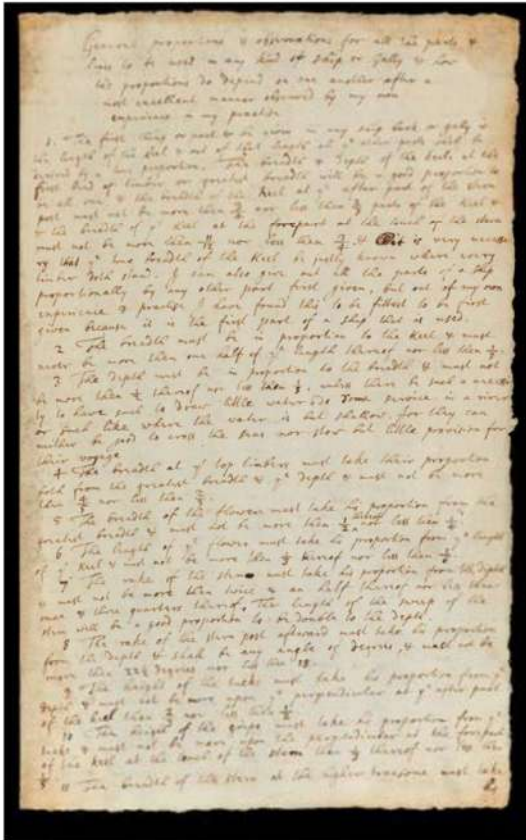 General proportions & observations for all the parts &
lines to be used in any kind of ship or gally & how
his proportions do depend on one another after a
most excellent manner observed by my own
experience in my practise
1. The first thing in any ship boat or gally is
the length of the keel & out of that length all yᵉ other parts must be
derived by a true proportion. The breadth & depth of the keel at the
first bend of timber or greatest breadth will be a good proportion to
be all one & the breadth of the keel at yᵉ after part of the stern
post must not be more then nor less then parts of the keel &
& the breadth of yᵉ keel at the forepart at the towel of the stem
must not be more then nor less then & it is very necessa
ry that yᵉ true breadth of the keel be justly known where every
timber doth stand. I can also give out all the parts of a ship
proportionally by any other part first given, but out of my own
experience & practise I have found this to be fittest to be first
given because it is the first part of a ship that is used.
2 The breadth must be in proportion to the keel & must
never be more then one half of yᵉ length thereof nor less then
3 The depth must be in proportion to the breadth & must not
be more then thereof nor less then unless there be such a necessi
ty to have such to draw little water do some service in a river
or such like where the water is but shallow, for they can
neither be good to cross the seas nor stow but little provision for
their voyage
4 The breadth at yᵉ top timbers must take their proportion
both from the greatest breadth & yᵉ depth & must not be more
then nor less then
5 The breadth of the flowers must take his proportion from the
greatest breadth & must not be more then thereof nor less then
6 The length of yᵉ flowers must take his proportion from yᵉ length
of yᵉ keel & must not be more then thereof nor less then
7 The rake of the stem must take his proportion from the depth
& must not be more then twice & an half thereof nor less then
once & three quarters thereof, the length of the sweep of the
stem will be a good proportion to be double to the depth.
8 The rake of the stern post afterward must take his proportion
from the depth & shall be any angle of degrees, & must not be
more then 22½ degrees nor less then 18.
9 The height of the tucke must take his proportion from yᵉ
depth & must not be more upon yᵉ perpendicular at yᵉ after part
of the keel then nor less then
10 The height of the gripe must take his proportion from yᵉ
tucke & must not be more upon the perpendicular at the forepart
of the keel at the towel of the stem then thereof nor less then
11 The breadth of the stern at the higher transome must take
his